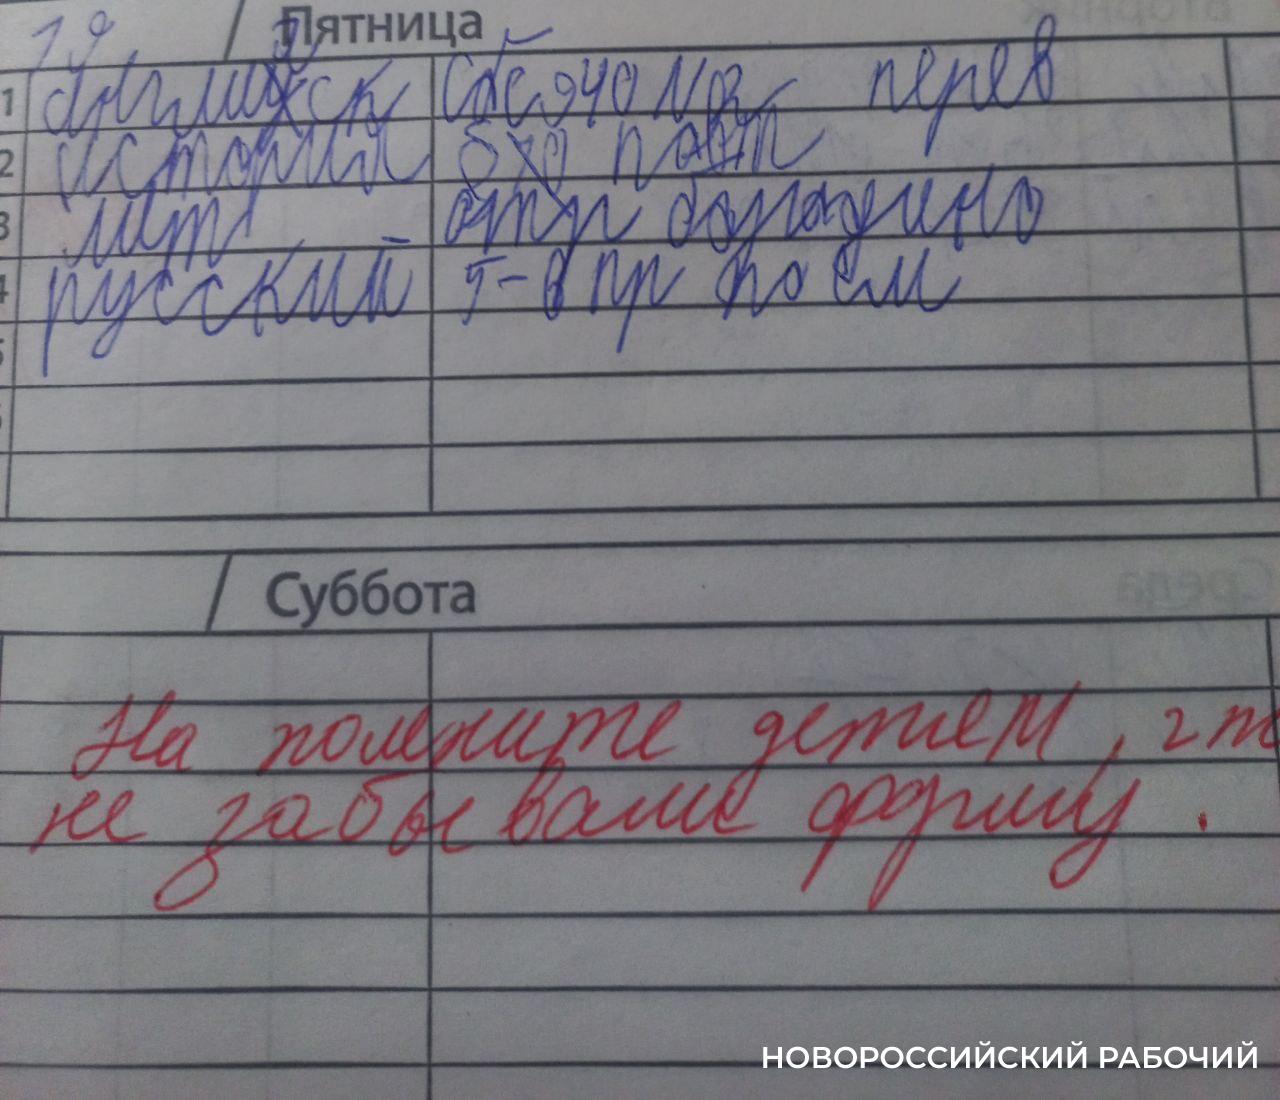 19 Пятница
1 англиск перев
2 история
3 лит отр бородино
4 русский 5-6 пр по ем
Суббота
На помните детием, чт
не забываме форму.
НОВОРОССИЙСКИЙ РАБОЧИЙ